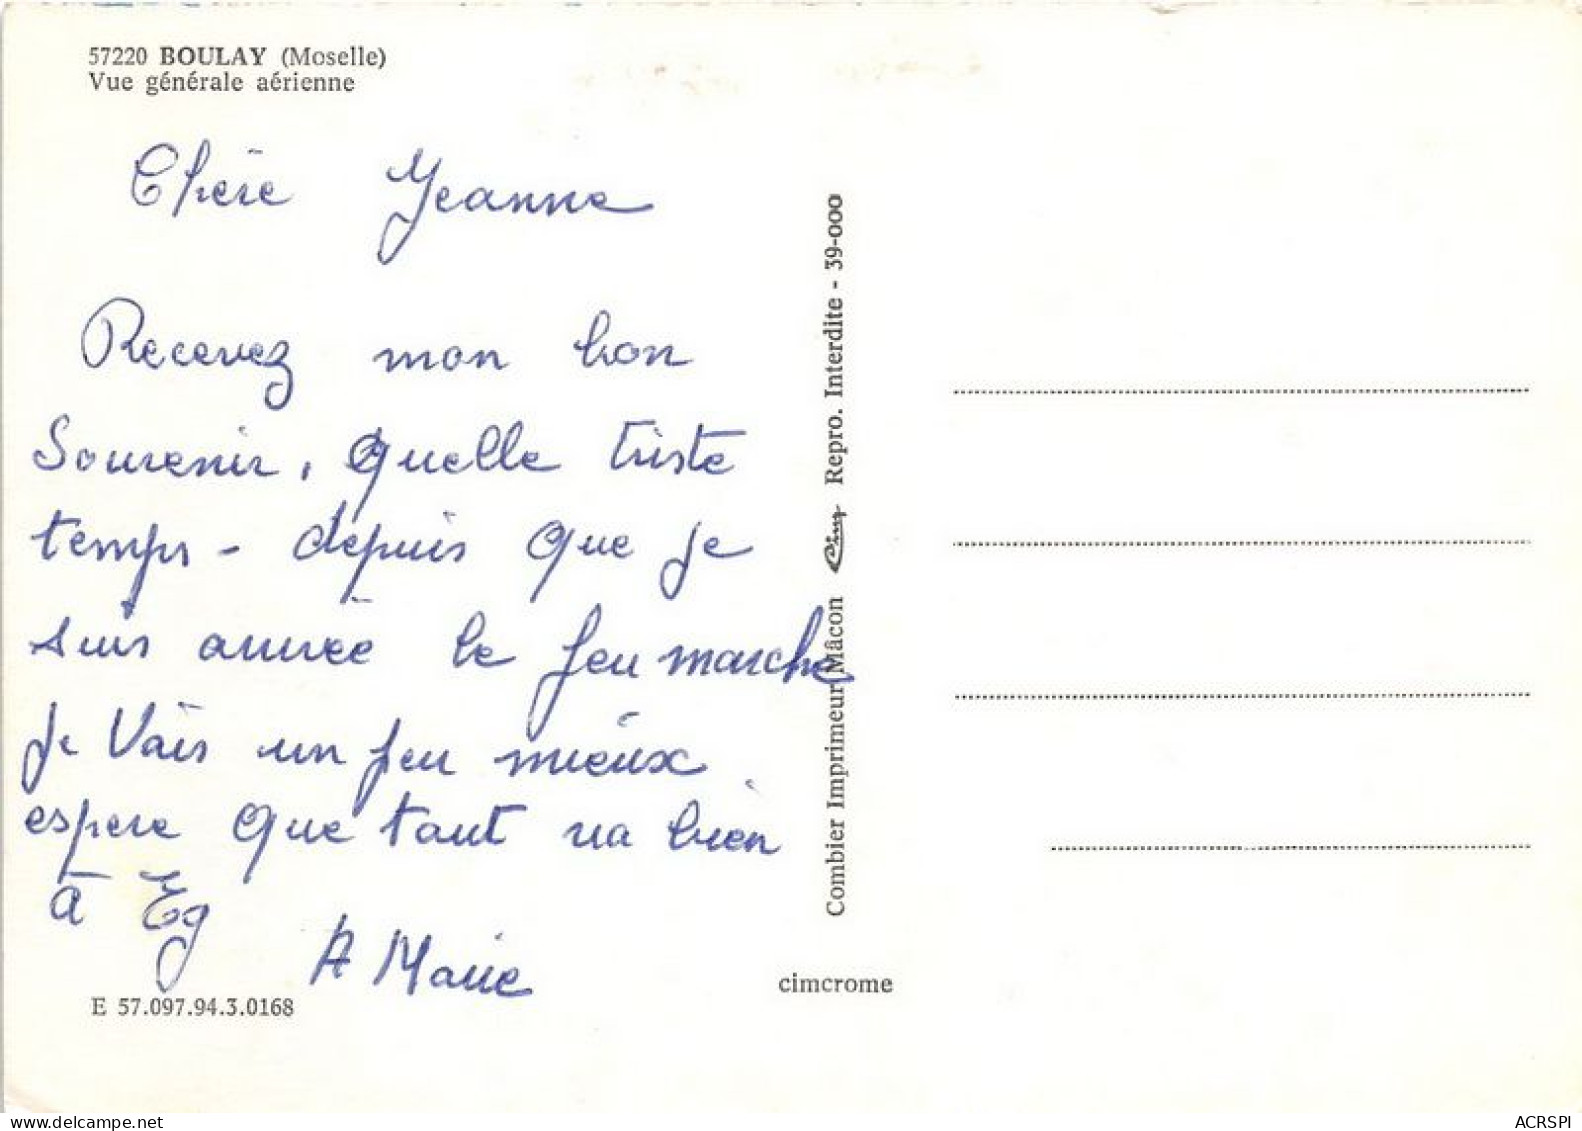 57220 BOULAY (Moselle)
Vue générale aérienne
Chère Jeanne
Recevez mon bon
Souvenir, quelle triste
temps - depuis que je
suis arrivée le feu marche
je vais un peu mieux
espere que tout va bien
à Eg
A Marie
E 57.097.94.3.0168
Combier Imprimeur Mâcon Cim Repro. Interdite - 39-000
cimcrome
ACRSPI